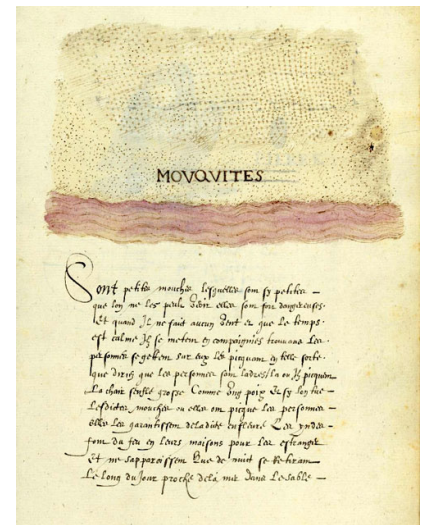 MOVQVITES
Sont petites mouches lesquelles sont sy petites
que lon ne les peult veoir elles sont fort dangereuses.
Et quand Il ne fait aucun vent et que le temps.
est calme Ilz se metent en compaignies trouvans les
personnes se getent sur eux les picquant en telle sorte.
que diriez que les personnes sont ladres la ou Ilz picquent
La chair senfle grosse Comme ung poix
Lesdictes mouches ou elles ont picque les personnes
elles les garantissent de ladite enfleure Les yndes
font du feu en leurs maisons pour les estranger
Et ne sapparoissent que de nuit se Retirant
Le long du Jour proche de la mer dans le sable